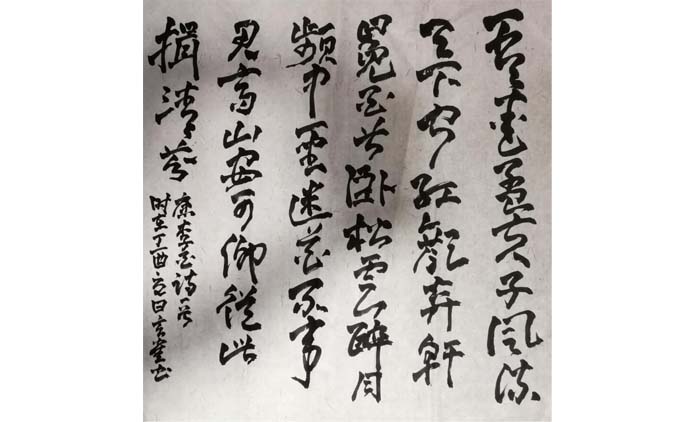 吾爱孟夫子風流
天下闻红顔弃軒
冕白首卧松雲醉月
頻中聖迷花不事
君高山安可仰從此
揖清芬
李白诗一首
时在丁酉日吉堂书